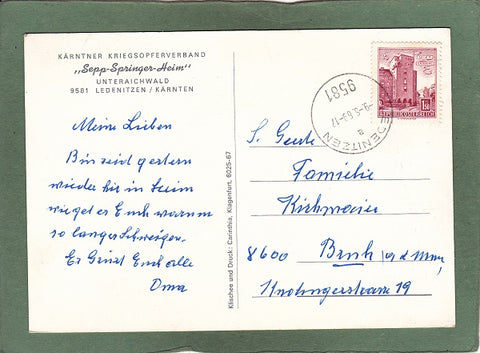 KÄRNTNER KRIEGSOPFERVERBAND
„Sepp-Springer-Heim"
UNTERAICHWALD
9581 LEDENITZEN / KÄRNTEN
Meine Lieben
Bin seid gestern
wieder hir in Heim
wie get es Euch warum
so langes Schweigen.
Es Grüst Euch alle
Oma
Klischee und Druck: Carinthia, Klagenfurt, 6025-67
REPUBLIK ÖSTERREICH
1.50
9581
LEDENITZEN
a
S. Geehr
Familie
Kirchmaier
8600 Bruk a d Mur
19